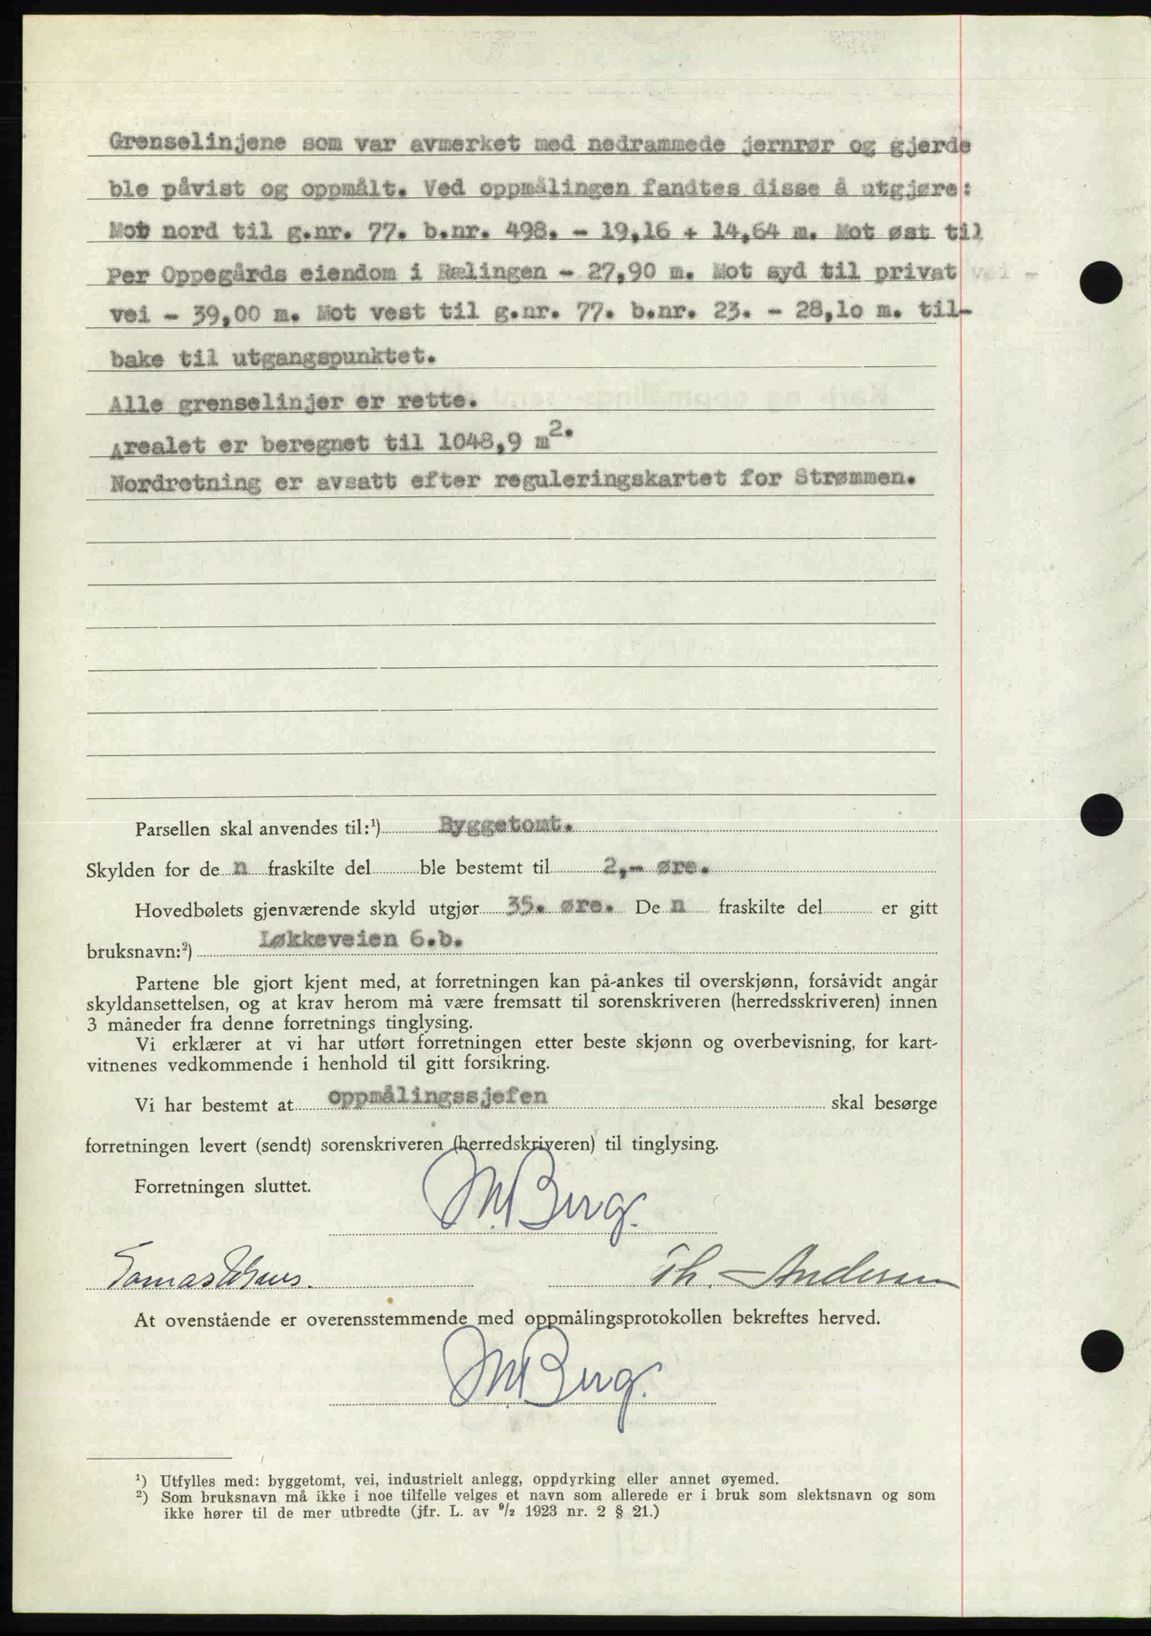 Grenselinjene som var avmerket med nedrammede jernrør og gjerde
ble påvist og oppmålt. Ved oppmålingen fandtes disse å utgjøre:
Mot nord til g.nr. 77. b.nr. 498. - 19,16 + 14,64 m. Mot øst til
Per Oppegårds eiendom i Rælingen - 27,90 m. Mot syd til privat vei -
vei - 39,00 m. Mot vest til g.nr. 77. b.nr. 23. - 28,10 m. til-
bake til utgangspunktet.
Alle grenselinjer er rette.
Arealet er beregnet til 1048,9 m².
Nordretning er avsatt efter reguleringskartet for Strømmen.
Parsellen skal anvendes til:¹) Byggetomt.
Skylden for de n fraskilte del ble bestemt til 2,- øre.
Hovedbølets gjenværende skyld utgjør 35. øre. De n fraskilte del er gitt
bruksnavn:²) Løkkeveien 6.b.
Partene ble gjort kjent med, at forretningen kan på-ankes til overskjønn, forsåvidt angår
skyldansettelsen, og at krav herom må være fremsatt til sorenskriveren (herredsskriveren) innen
3 måneder fra denne forretnings tinglysing.
Vi erklærer at vi har utført forretningen etter beste skjønn og overbevisning, for kart-
vitnenes vedkommende i henhold til gitt forsikring.
Vi har bestemt at oppmålingssjefen skal besørge
forretningen levert (sendt) sorenskriveren (herredskriveren) til tinglysing.
Forretningen sluttet.
M Berg.
Tomas Th. Andersen
At ovenstående er overensstemmende med oppmålingsprotokollen bekreftes herved.
M Berg.
¹) Utfylles med: byggetomt, vei, industrielt anlegg, oppdyrking eller annet øyemed.
²) Som bruksnavn må ikke i noe tilfelle velges et navn som allerede er i bruk som slektsnavn og som
ikke hører til de mer utbredte (jfr. L. av ⁹/₂ 1923 nr. 2 § 21.)